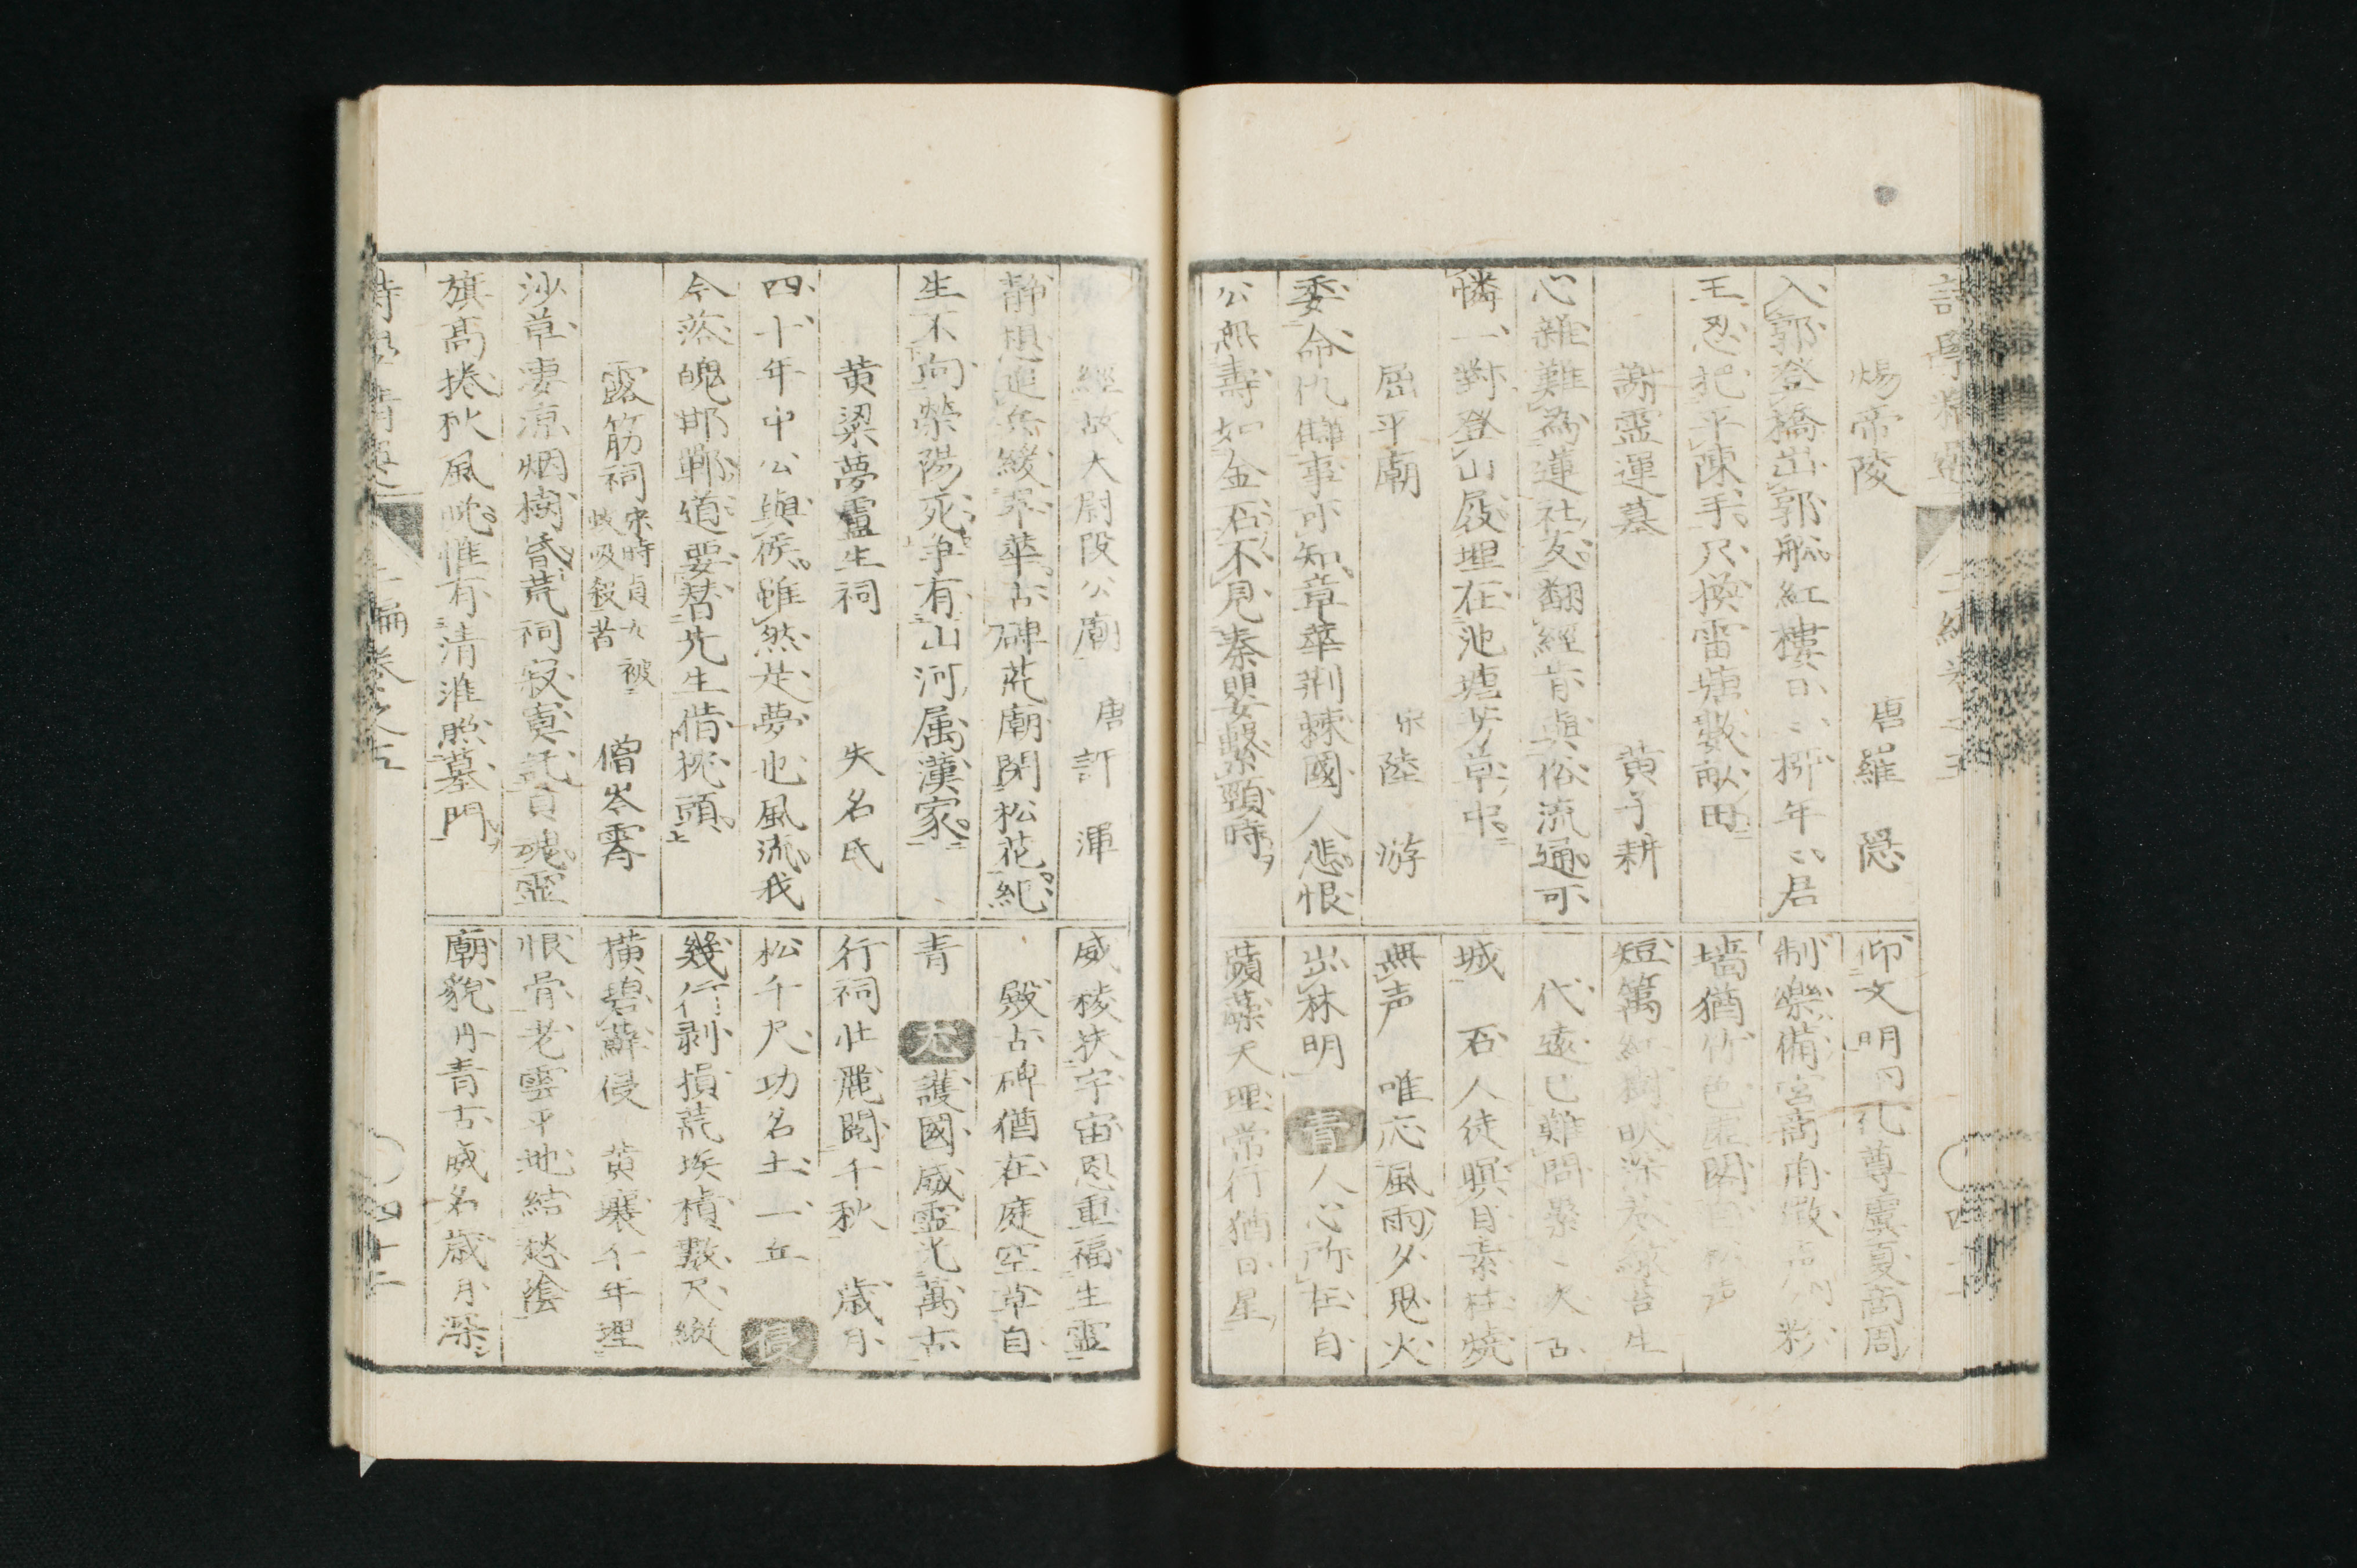 詩學精選 二編卷之五
煬帝陵 唐 羅隱
入郭登橋出郭船紅樓日々柳年々君
王忍把平陳手只換雷塘數畝田
謝靈運墓 黃子耕
心雜難為蓮社友翻經肯與俗流通可
憐一對登山屐埋在池塘芳草中
屈平廟 宋 陸游
委命仇讎事可知章華荆棘國人悲恨
公無壽如金石不見秦嬰繫頸時
仰文明 化尊虞夏商周
制樂備宮商角徵 彩
墻猶竹色 閣 声
短篱紅樹映深巷綠苔生
代遠已難問累々次古
城 石人徒瞑目素柱燒
無声 唯応風雨夕鬼火
出林明 青 人心所在自
蘋藻天理常行猶日星
經故大尉段公廟 唐 許渾
靜想追兵緩翠華古碑荒廟閉松花紀
生不向滎陽死争有山河属漢家
黃粱夢盧生祠 失名氏
四十年中公與侯雖然是夢也風流我
今落魄邯鄲道要替先生借枕頭
露筋祠 宋時貞女被蚊吸殺者 僧岑霽
沙草凄凉烟樹昏荒祠寂寞託貞魂靈
旗高捲秋風晚惟有清淮照墓門
威稜狹宇宙恩重福生霊
殿古碑猶在庭空草自
青 尤 護國威霊光萬古
行祠壮麗閲千秋 歳月
松千尺功名土一丘 侵
幾行剥損荒埃積數尺縱
横碧蘚侵 黄壤千年埋
恨骨老雲平地結愁陰
廟貌丹青古威名歳月深
詩學精選 二編卷之五 四十二